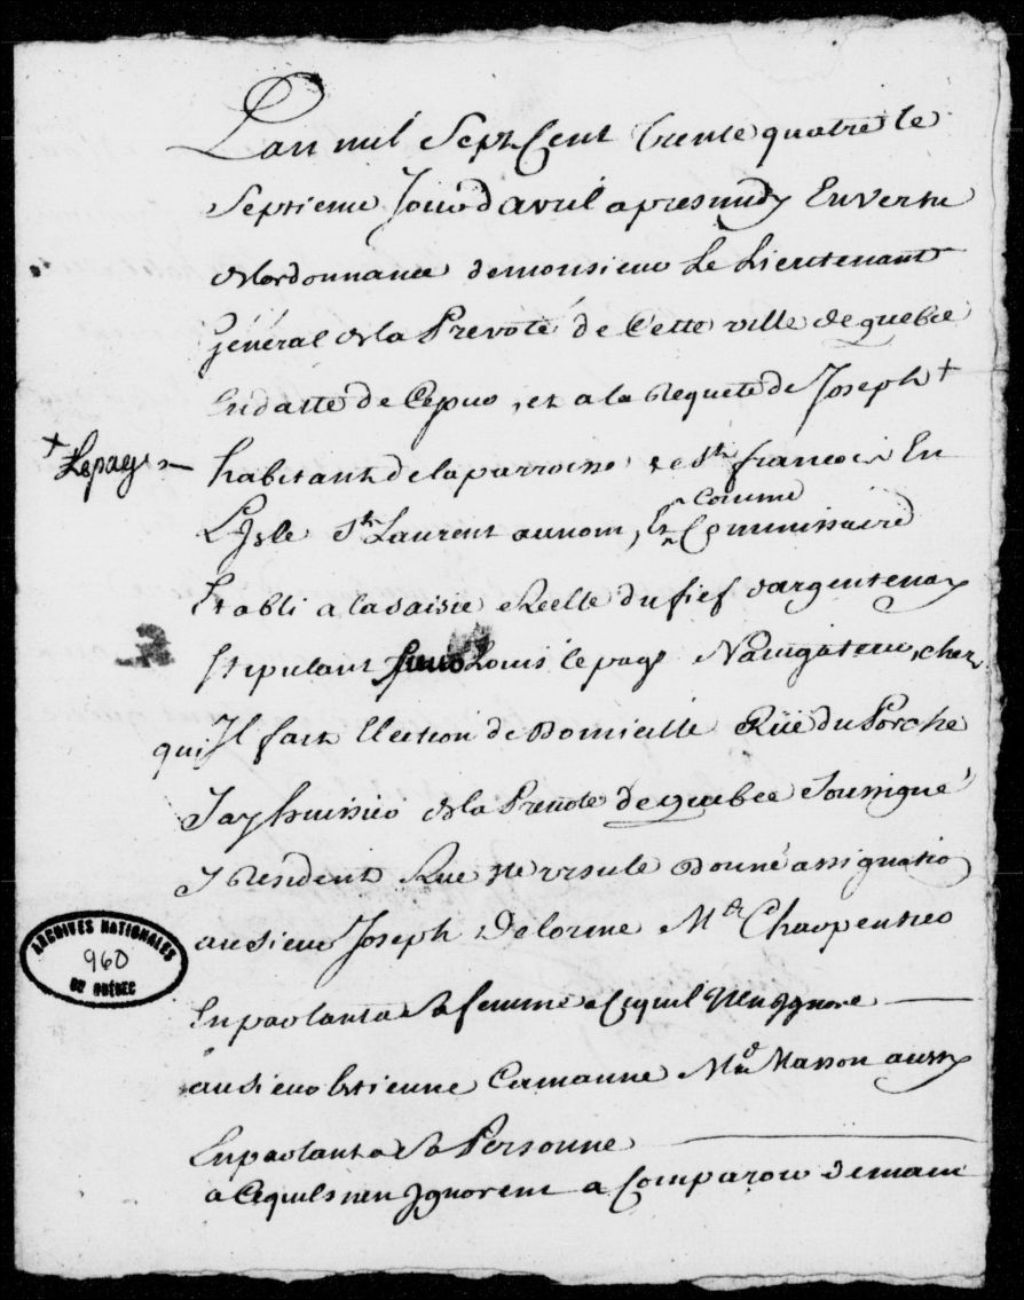 Lan mil Sept Cent trente quatre le
Septieme Jour davril apresmidy En vertu
de lordonnance de monsieur Le Lieutenant
Général de la Prevoté de Cette ville de quebec
En datte de Ce jour, et a la Requete de Joseph +
+ Lepage
habitant de la parroisse de St francois En
L'Isle St Laurent au nom, Et comme Commissaire
Etabli a la saisie Reelle du fief dargentenay
stipulant pour Louis lepage Navigateur, chez
qui Il fait Election de Domicille Rüe du Porche
Jay huissier de la Prevoté de quebec Soussigné
y Resident Rue Ste ursule Donné assignatio
au sieur Joseph Delorme Me Charpentier
En parlant a Sa femme a Cequil Nen Ignore
au sieur Estienne Camanne Me Masson aussy
En parlant a Sa Personne
a Cequils nen Ignorent a Comparoir demain
ARCHIVES NATIONALES
960
DU QUÉBEC